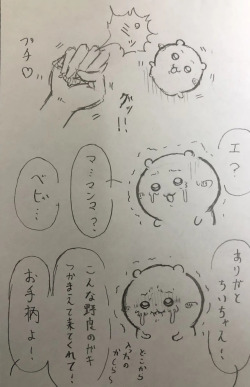 プチ♡
グッ!!
エ?
マ…マンマ?
ベビ…
ありがとちいちゃん!
こんな野良のガキ
つかまえて来てくれて!
お手柄よ!
どこから
かしら〜